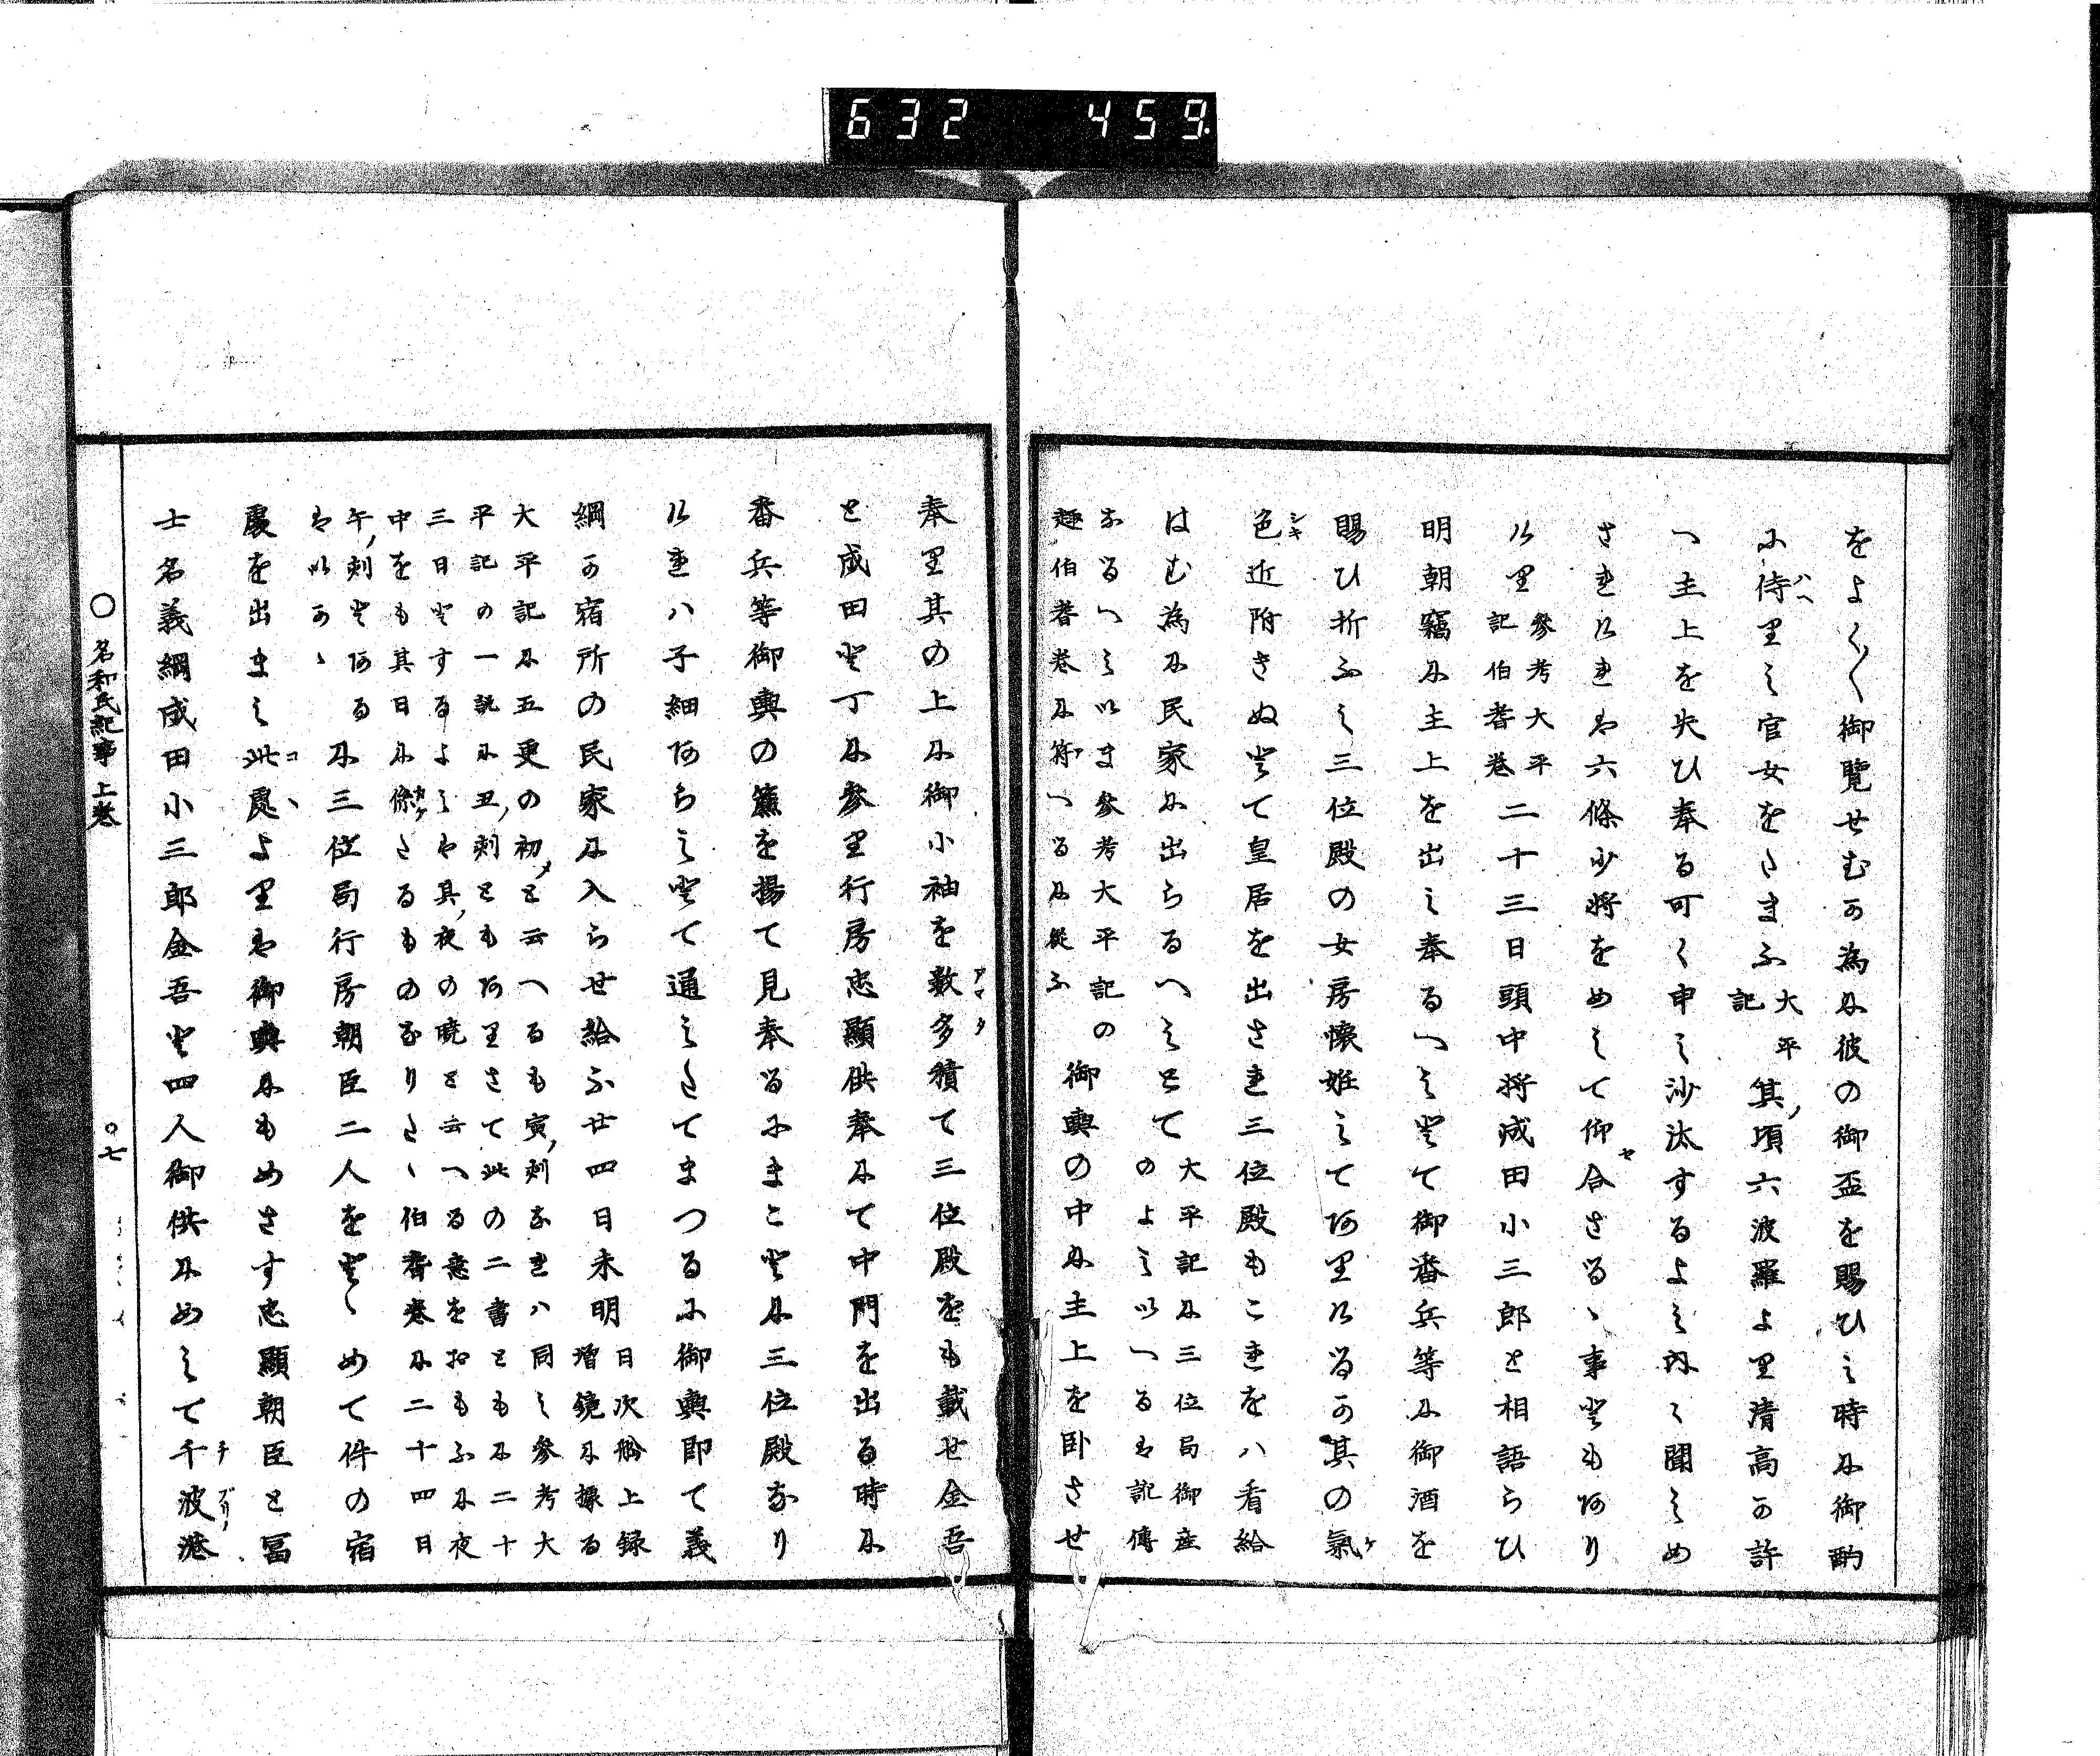 632 459
をよく〳〵御覧せむか為に彼の御盃を賜ひし時に御酌
に侍里し官女をたまふ大平記其頃六波羅より清高か許
へ主上を失ひ奉る可く申し沙汰するよし内く聞しめ
されけれは六條少将をめして仰合さるゝ事ともあり
けり参考大平記伯耆巻二十三日頭中将成田小三郎と相語らひ
明朝竊に主上を出し奉るへしとて御番兵等に御酒を
賜ひ折ふし三位殿の女房懐妊してありけるか其の氣
色近附きぬとて皇居を出され三位殿もこれをハ看給
はむ為に民家に出らるへしとて大平記に三位局御産のよし以へるは訛傳
なるへし以ま参考大平記の趣伯耆巻に符へるに従ふ御輿の中に主上を卧させ
奉里其の上に御小袖を数多積て三位殿をも載せ金吾
と成田と丁に参里行房忠顯供奉にて中門を出る時に
番兵等御輿の簾を揚て見奉るにまことに三位殿なり
けれハ子細あらしとて通したてまつるに御輿即て義
綱か宿所の民家に入らせ給ふ廿四日未明日次船上録増鏡に據る
大平記に五更の初と云へるも寅刻なれハ同し参考大
平記の一説に丑刻ともありさて此の二書ともに二十
三日とするよしは其夜の暁と云へる意をおもふに夜
中をも其日に係たるものなりたゝ伯耆巻に二十四日
午刻とある
は以かゝに三位局行房朝臣二人をとゝめて件の宿
處を出まし此處よりは御輿にもめさす忠顯朝臣と冨
士名義綱成田小三郎金吾と四人御供にめして千波港
〇名和氏紀事 上巻 〇七